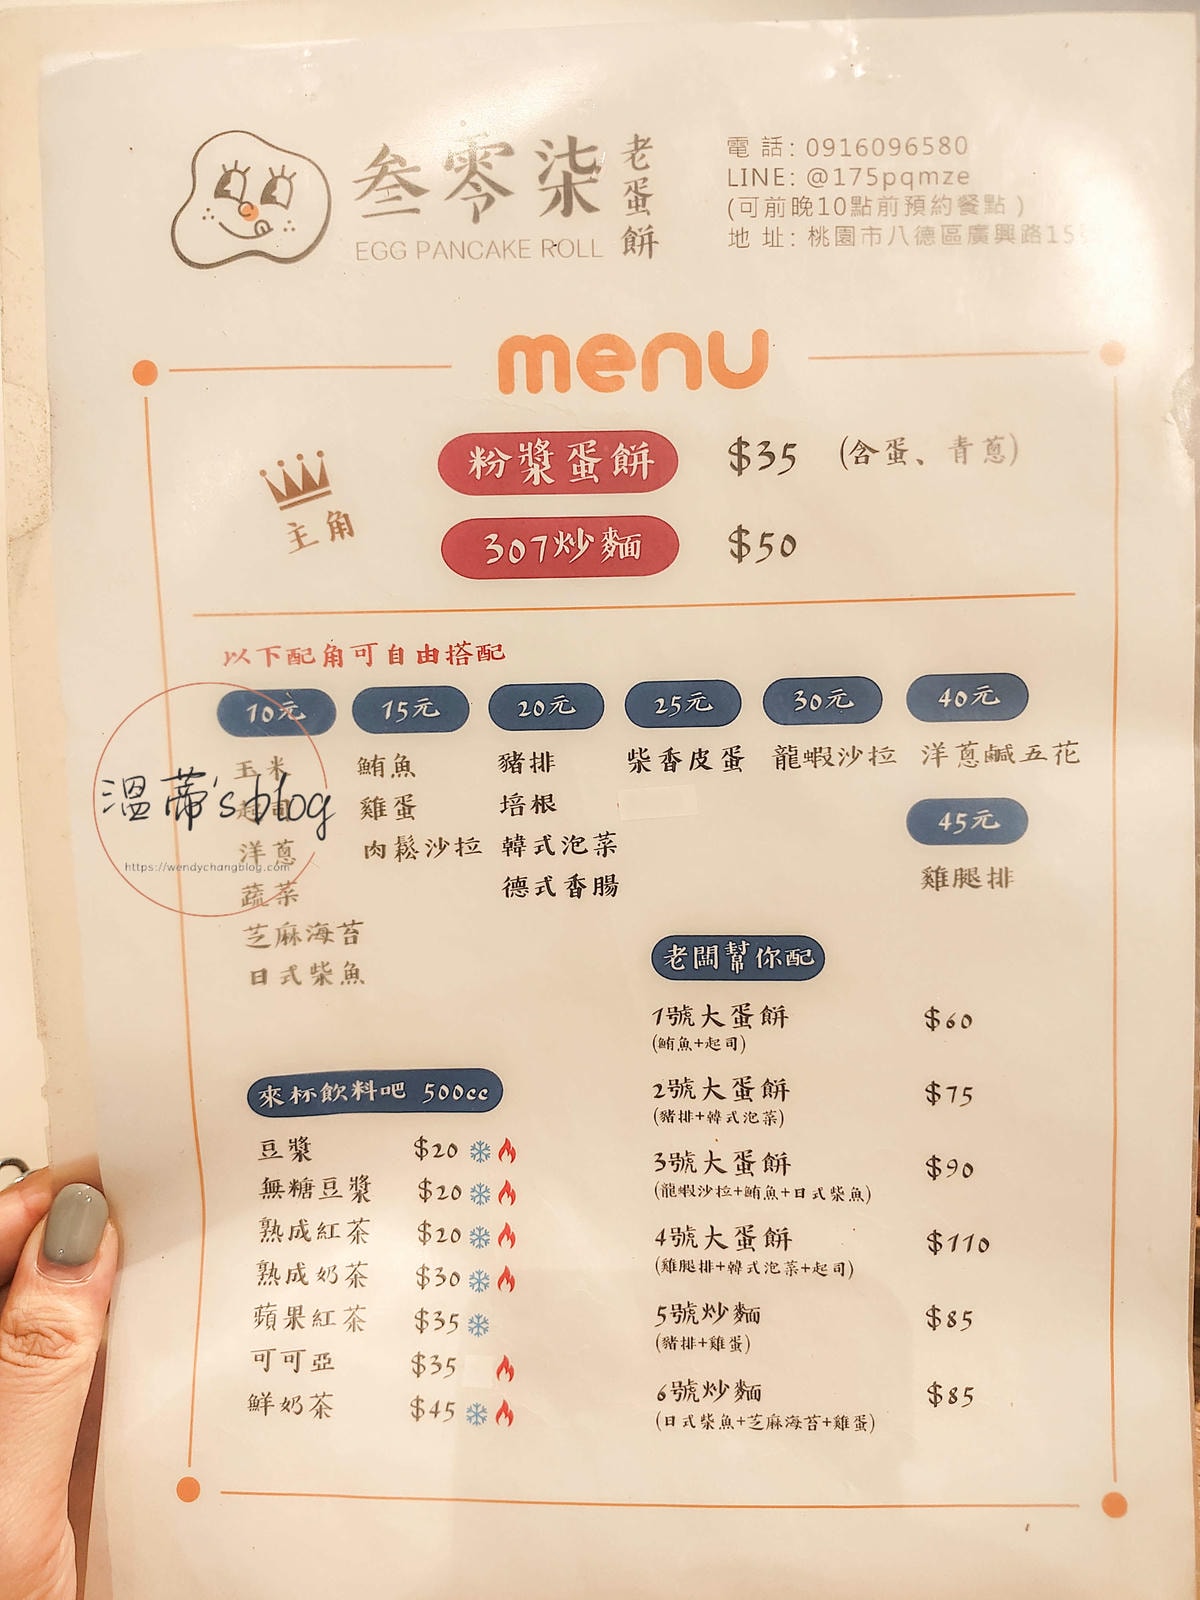 叁零柒
老蛋餅
EGG PANCAKE ROLL
電話: 0916096580
LINE: @175pqmze
(可前晚10點前預約餐點)
地址: 桃園市八德區廣興路15
menu
主角
粉漿蛋餅 $35 (含蛋、青蔥)
307炒麵 $50
以下配角可自由搭配
10元
玉米
起司
洋蔥
蔬菜
芝麻海苔
日式柴魚
15元
鮪魚
雞蛋
肉鬆沙拉
20元
豬排
培根
韓式泡菜
德式香腸
25元
柴香皮蛋
30元
龍蝦沙拉
40元
洋蔥鹹五花
45元
雞腿排
溫蒂's blog
https://wendychangblog.com
老闆幫你配
1號大蛋餅 $60
(鮪魚+起司)
2號大蛋餅 $75
(豬排+韓式泡菜)
3號大蛋餅 $90
(龍蝦沙拉+鮪魚+日式柴魚)
4號大蛋餅 $110
(雞腿排+韓式泡菜+起司)
5號炒麵 $85
(豬排+雞蛋)
6號炒麵 $85
(日式柴魚+芝麻海苔+雞蛋)
來杯飲料吧 500cc
豆漿 $20
無糖豆漿 $20
熟成紅茶 $20
熟成奶茶 $30
蘋果紅茶 $35
可可亞 $35
鮮奶茶 $45